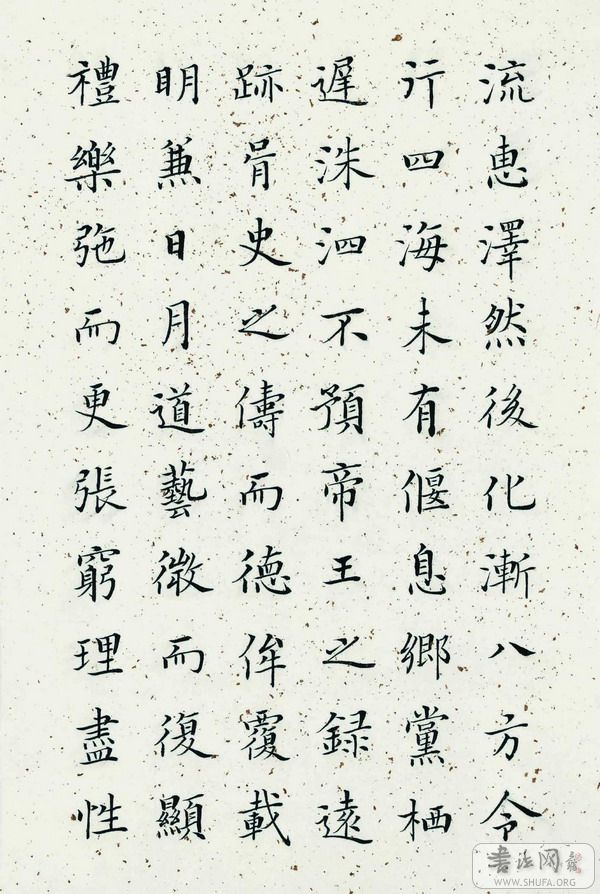 流惠澤然後化漸八方令
行四海未有偃息鄉黨栖
遲洙泗不預帝王之録遠
跡胥史之儔而德侔覆載
明兼日月道藝微而復顯
禮樂弛而更張窮理盡性
書法网
WWW.SHUFA.ORG